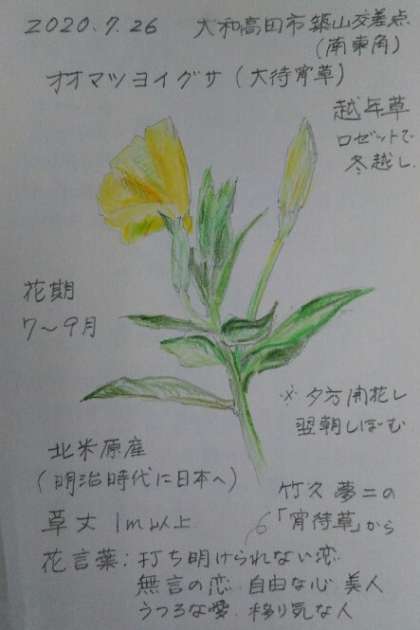 2020.7.26 大和高田市築山交差点
(南東角)
オオマツヨイグサ(大待宵草)
越年草
ロゼットで
冬越し.
花期
7〜9月
※夕方開花し
翌朝しぼむ
北米原産
(明治時代に日本へ)
竹久夢二の
「宵待草」から
草丈 1m以上
花言葉:打ち明けられない恋
無言の恋 自由な心 美人
うつろな愛 移り気な人